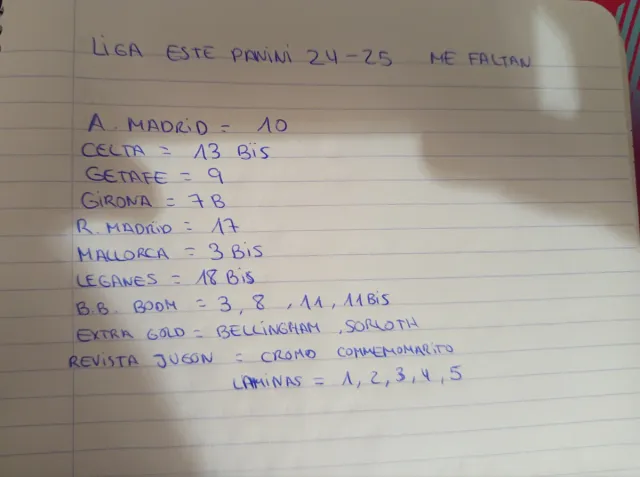 LIGA ESTE PANINI 24-25 ME FALTAN
A. MADRID = 10
CELTA = 13 BIS
GETAFE = 9
GIRONA = 7B
R. MADRID = 17
MALLORCA = 3 BIS
LEGANES = 18 BIS
B.B. BOOM = 3, 8, 11, 11 BIS
EXTRA GOLD = BELLINGHAM, SORLOTH
REVISTA JUGON = CROMO COMMEMOMARITO
LAMINAS = 1, 2, 3, 4, 5